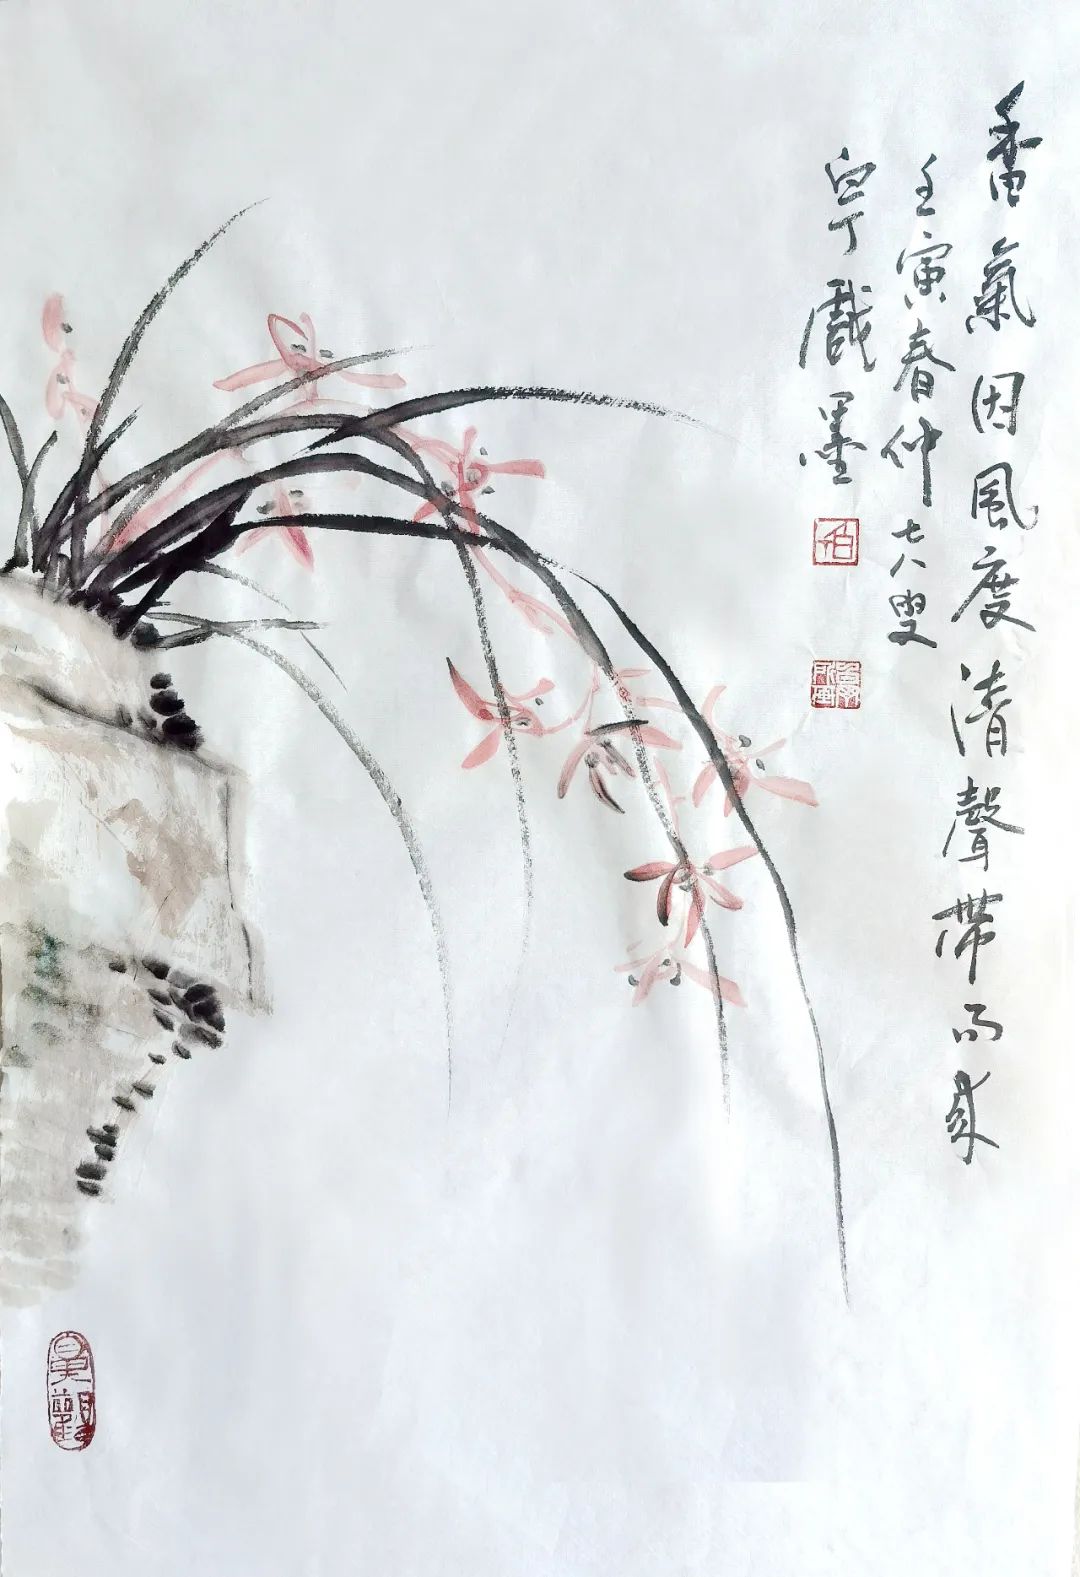 香氣因風度清聲帶雨來
壬寅春仲七八叟
白丁戲墨